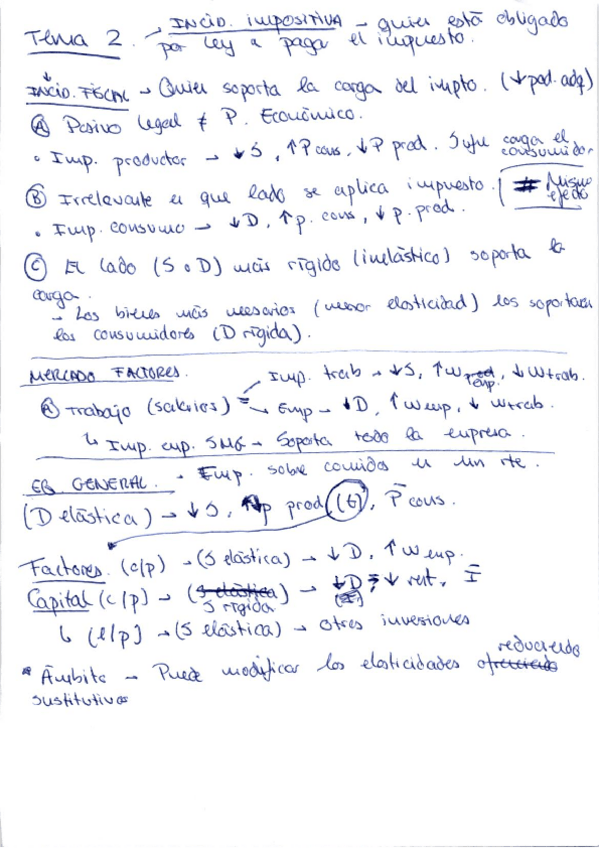 Tema 2. → INCID. IMPOSITIVA → quien está obligado
por ley a paga el impuesto.
INCID. FISCAL → Quien soporta la carga del impto. (↓ pod. adq)
Ⓐ Pasivo legal ≠ P. Económico.
• Imp. productor → ↓ S, ↑ P cons, ↓ P prod. Sufre carga el consumidor
Ⓑ Irrelevante en que lado se aplica impuesto. # Mismo efecto
• Imp. consumo → ↓ D, ↑ p. cons, ↓ p. prod.
Ⓒ El lado (S o D) más rígido (inelástico) soporta la
carga.
→ Los bienes más necesarios (menor elasticidad) los soportan
los consumidores (D rígida).
MERCADO FACTORES.
Imp. trab → ↓ S, ↑ W emp, ↓ W trab.
Ⓐ Trabajo (salarios)
Emp → ↓ D, ↑ W emp, ↓ W trab.
↳ Imp. emp. SMG → Soporta todo la empresa.
EQ. GENERAL. → Emp. sobre comidas en un rte.
(D elástica) → ↓ S, p prod (G), P̄ cons.
Factores. (c/p) → (S elástica) → ↓ D, ↑ W emp.
Capital (c/p) → (S elástica) → ↓ D → ↓ rent, Ī
S rígida
↳ (l/p) → (S elástica) → otras inversiones
reduciendo
* Ámbito → Puede modificar las elasticidades ofreciendo
sustitutivos